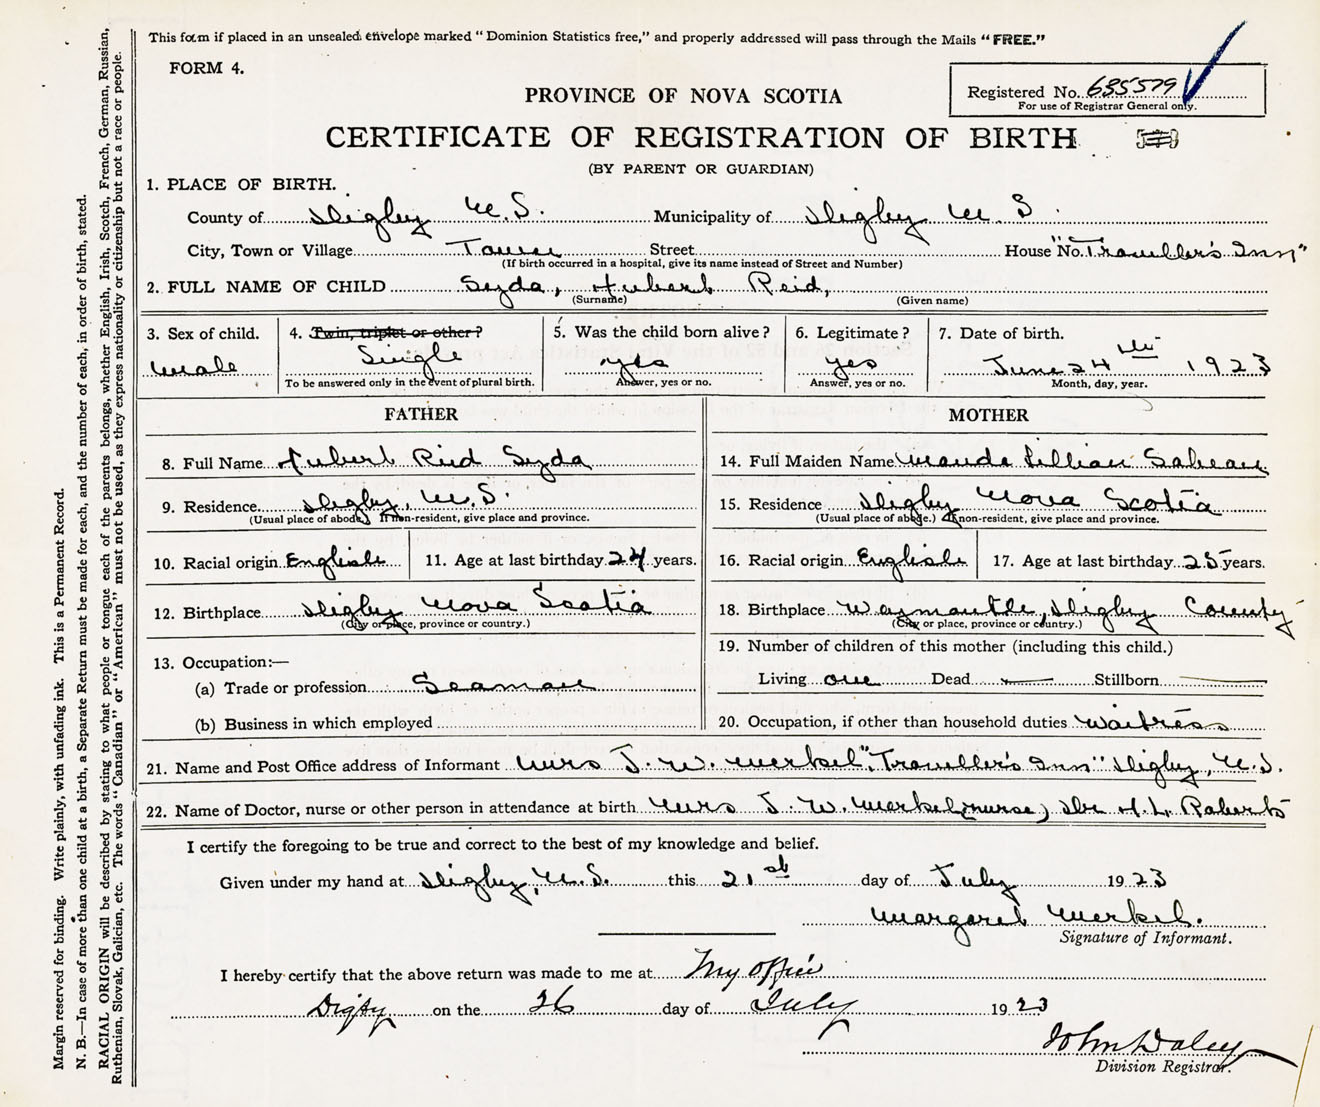 This form if placed in an unsealed envelope marked "Dominion Statistics free," and properly addressed will pass through the Mails "FREE."
FORM 4.
Registered No. 635579
For use of Registrar General only.
PROVINCE OF NOVA SCOTIA
CERTIFICATE OF REGISTRATION OF BIRTH
(BY PARENT OR GUARDIAN)
1. PLACE OF BIRTH.
County of Digby N.S. Municipality of Digby N S
City, Town or Village Town Street House No. "Traveller's Inn"
(If birth occurred in a hospital, give its name instead of Street and Number)
2. FULL NAME OF CHILD Syda, Hubert Reid,
(Surname) (Given name)
3. Sex of child. 4. Twin, triplet or other? 5. Was the child born alive? 6. Legitimate? 7. Date of birth.
Male Single yes yes June 24th 1923
To be answered only in the event of plural birth. Answer, yes or no. Answer, yes or no. Month, day, year.
FATHER MOTHER
8. Full Name Hubert Reid Syda 14. Full Maiden Name Maude Lillian Sabean
9. Residence Digby, N.S. 15. Residence Digby Nova Scotia
(Usual place of abode.) If non-resident, give place and province. (Usual place of abode.) If non-resident, give place and province.
10. Racial origin English 11. Age at last birthday 24 years. 16. Racial origin English 17. Age at last birthday 25 years.
12. Birthplace Digby Nova Scotia 18. Birthplace Waymantle, Digby County
(City or place, province or country.) (City or place, province or country.)
13. Occupation:— 19. Number of children of this mother (including this child.)
(a) Trade or profession Seaman Living one Dead — Stillborn —
(b) Business in which employed 20. Occupation, if other than household duties Waitress
21. Name and Post Office address of Informant Mrs J. W. Merkel "Traveller's Inn" Digby, N.S.
22. Name of Doctor, nurse or other person in attendance at birth Mrs J. W. Merkel (nurse) Dr H.L. Roberts
I certify the foregoing to be true and correct to the best of my knowledge and belief.
Given under my hand at Digby, N.S. this 21st day of July 1923
Margaret Merkel.
Signature of Informant.
I hereby certify that the above return was made to me at My office
Digby on the 26 day of July 1923
John Daley
Division Registrar.
Margin reserved for binding. Write plainly, with unfading ink. This is a Permanent Record.
N. B.—In case of more than one child at a birth, a Separate Return must be made for each, and the number of each, in order of birth, stated.
RACIAL ORIGIN will be described by stating to what people or tongue each of the parents belongs, whether English, Irish, Scotch, French, German, Russian,
Ruthenian, Slovak, Galician, etc. The words "Canadian" or "American" must not be used, as they express nationality or citizenship but not a race or people.